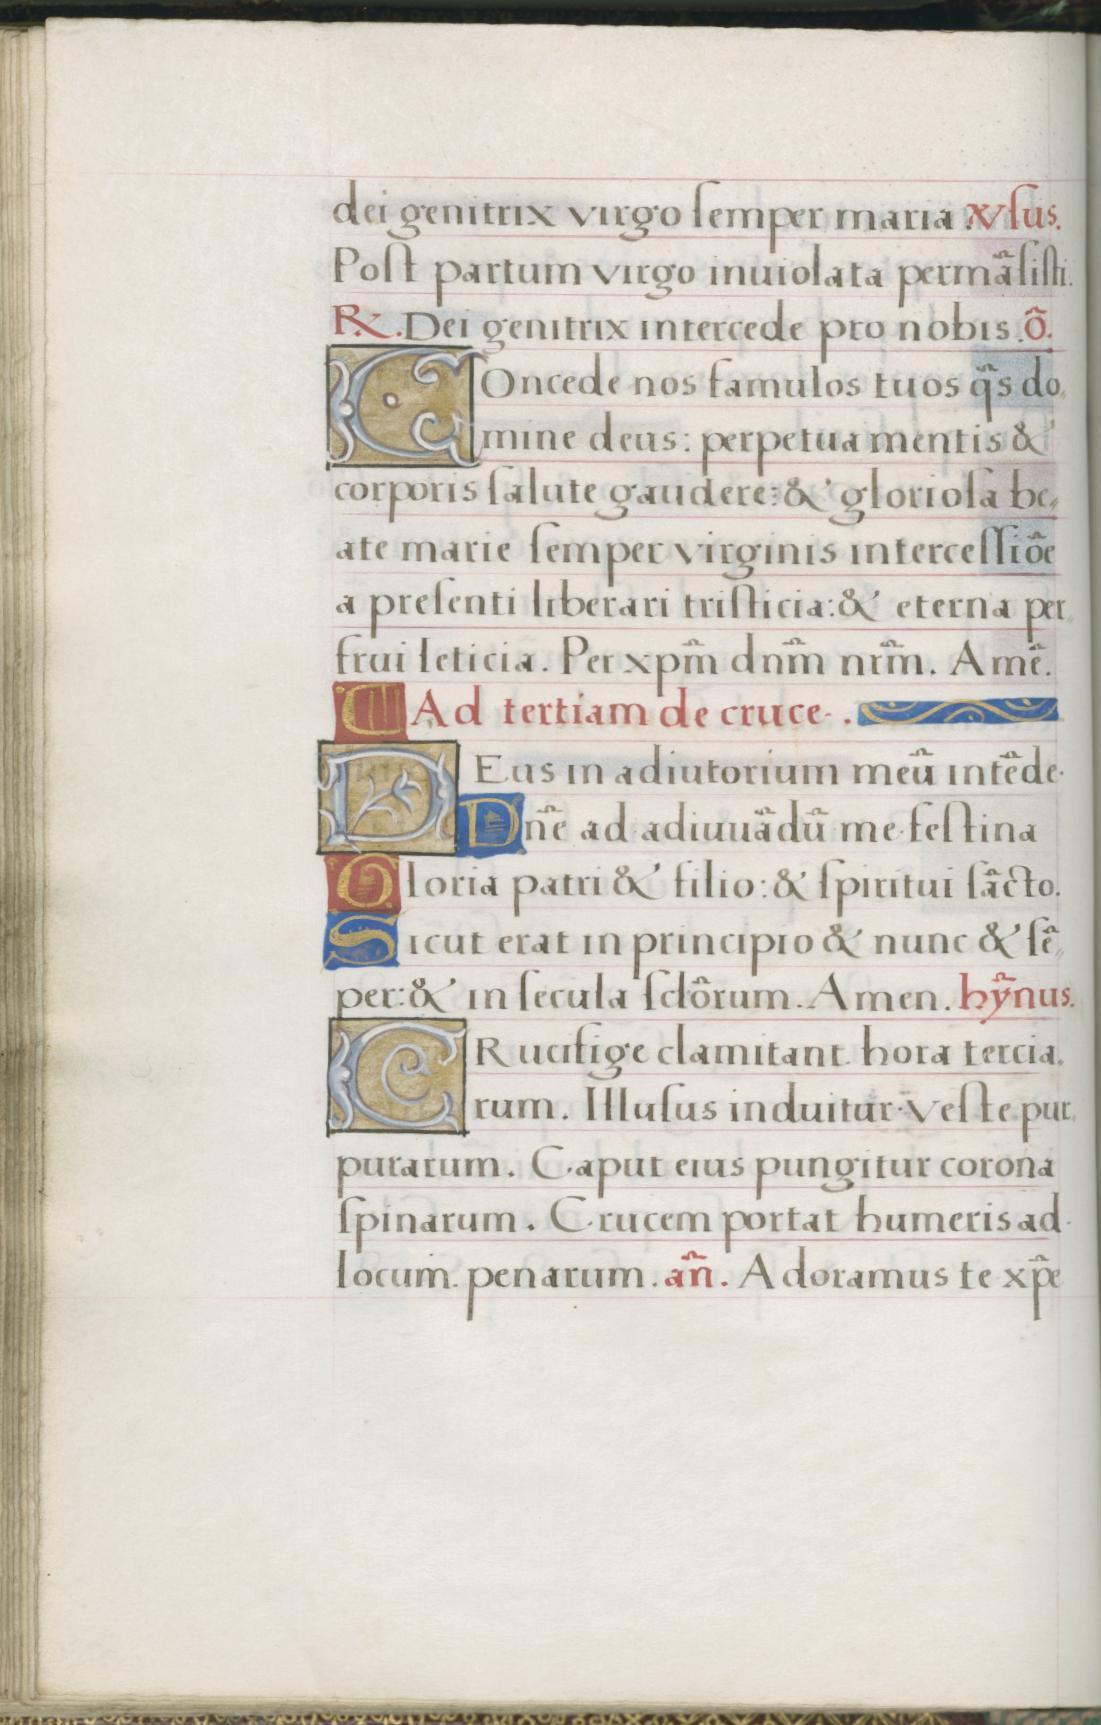 dei genitrix virgo ſemper maria. ℣ſus.
Poſt partum virgo inuiolata permãſiſti.
℟. Dei genitrix intercede pro nobis. õ.
COncede nos famulos tuos q̃s do,
mine deus: perpetua mentis &
corporis ſalute gaudere: & glorioſa be,
ate marie ſemper virginis interceſſiõe
a preſenti liberari triſticia: & eterna per,
frui leticia. Per xpm̃ dnm̃ nrm̃. Amẽ.
Ad tertiam de cruce.
DEus in adiutorium meũ intẽde.
Dñe ad adiuuãdũ me feſtina
Gloria patri & filio: & ſpiritui ſãcto.
Sicut erat in principio & nunc & ſẽ,
per: & in ſecula ſclõrum. Amen. hỹnus.
CRucifige clamitant hora tercia,
rum. Illuſus induitur veſte pur,
purarum. Caput eius pungitur corona
ſpinarum. Crucem portat humeris ad
locum penarum. añ. Adoramus te xp̃e